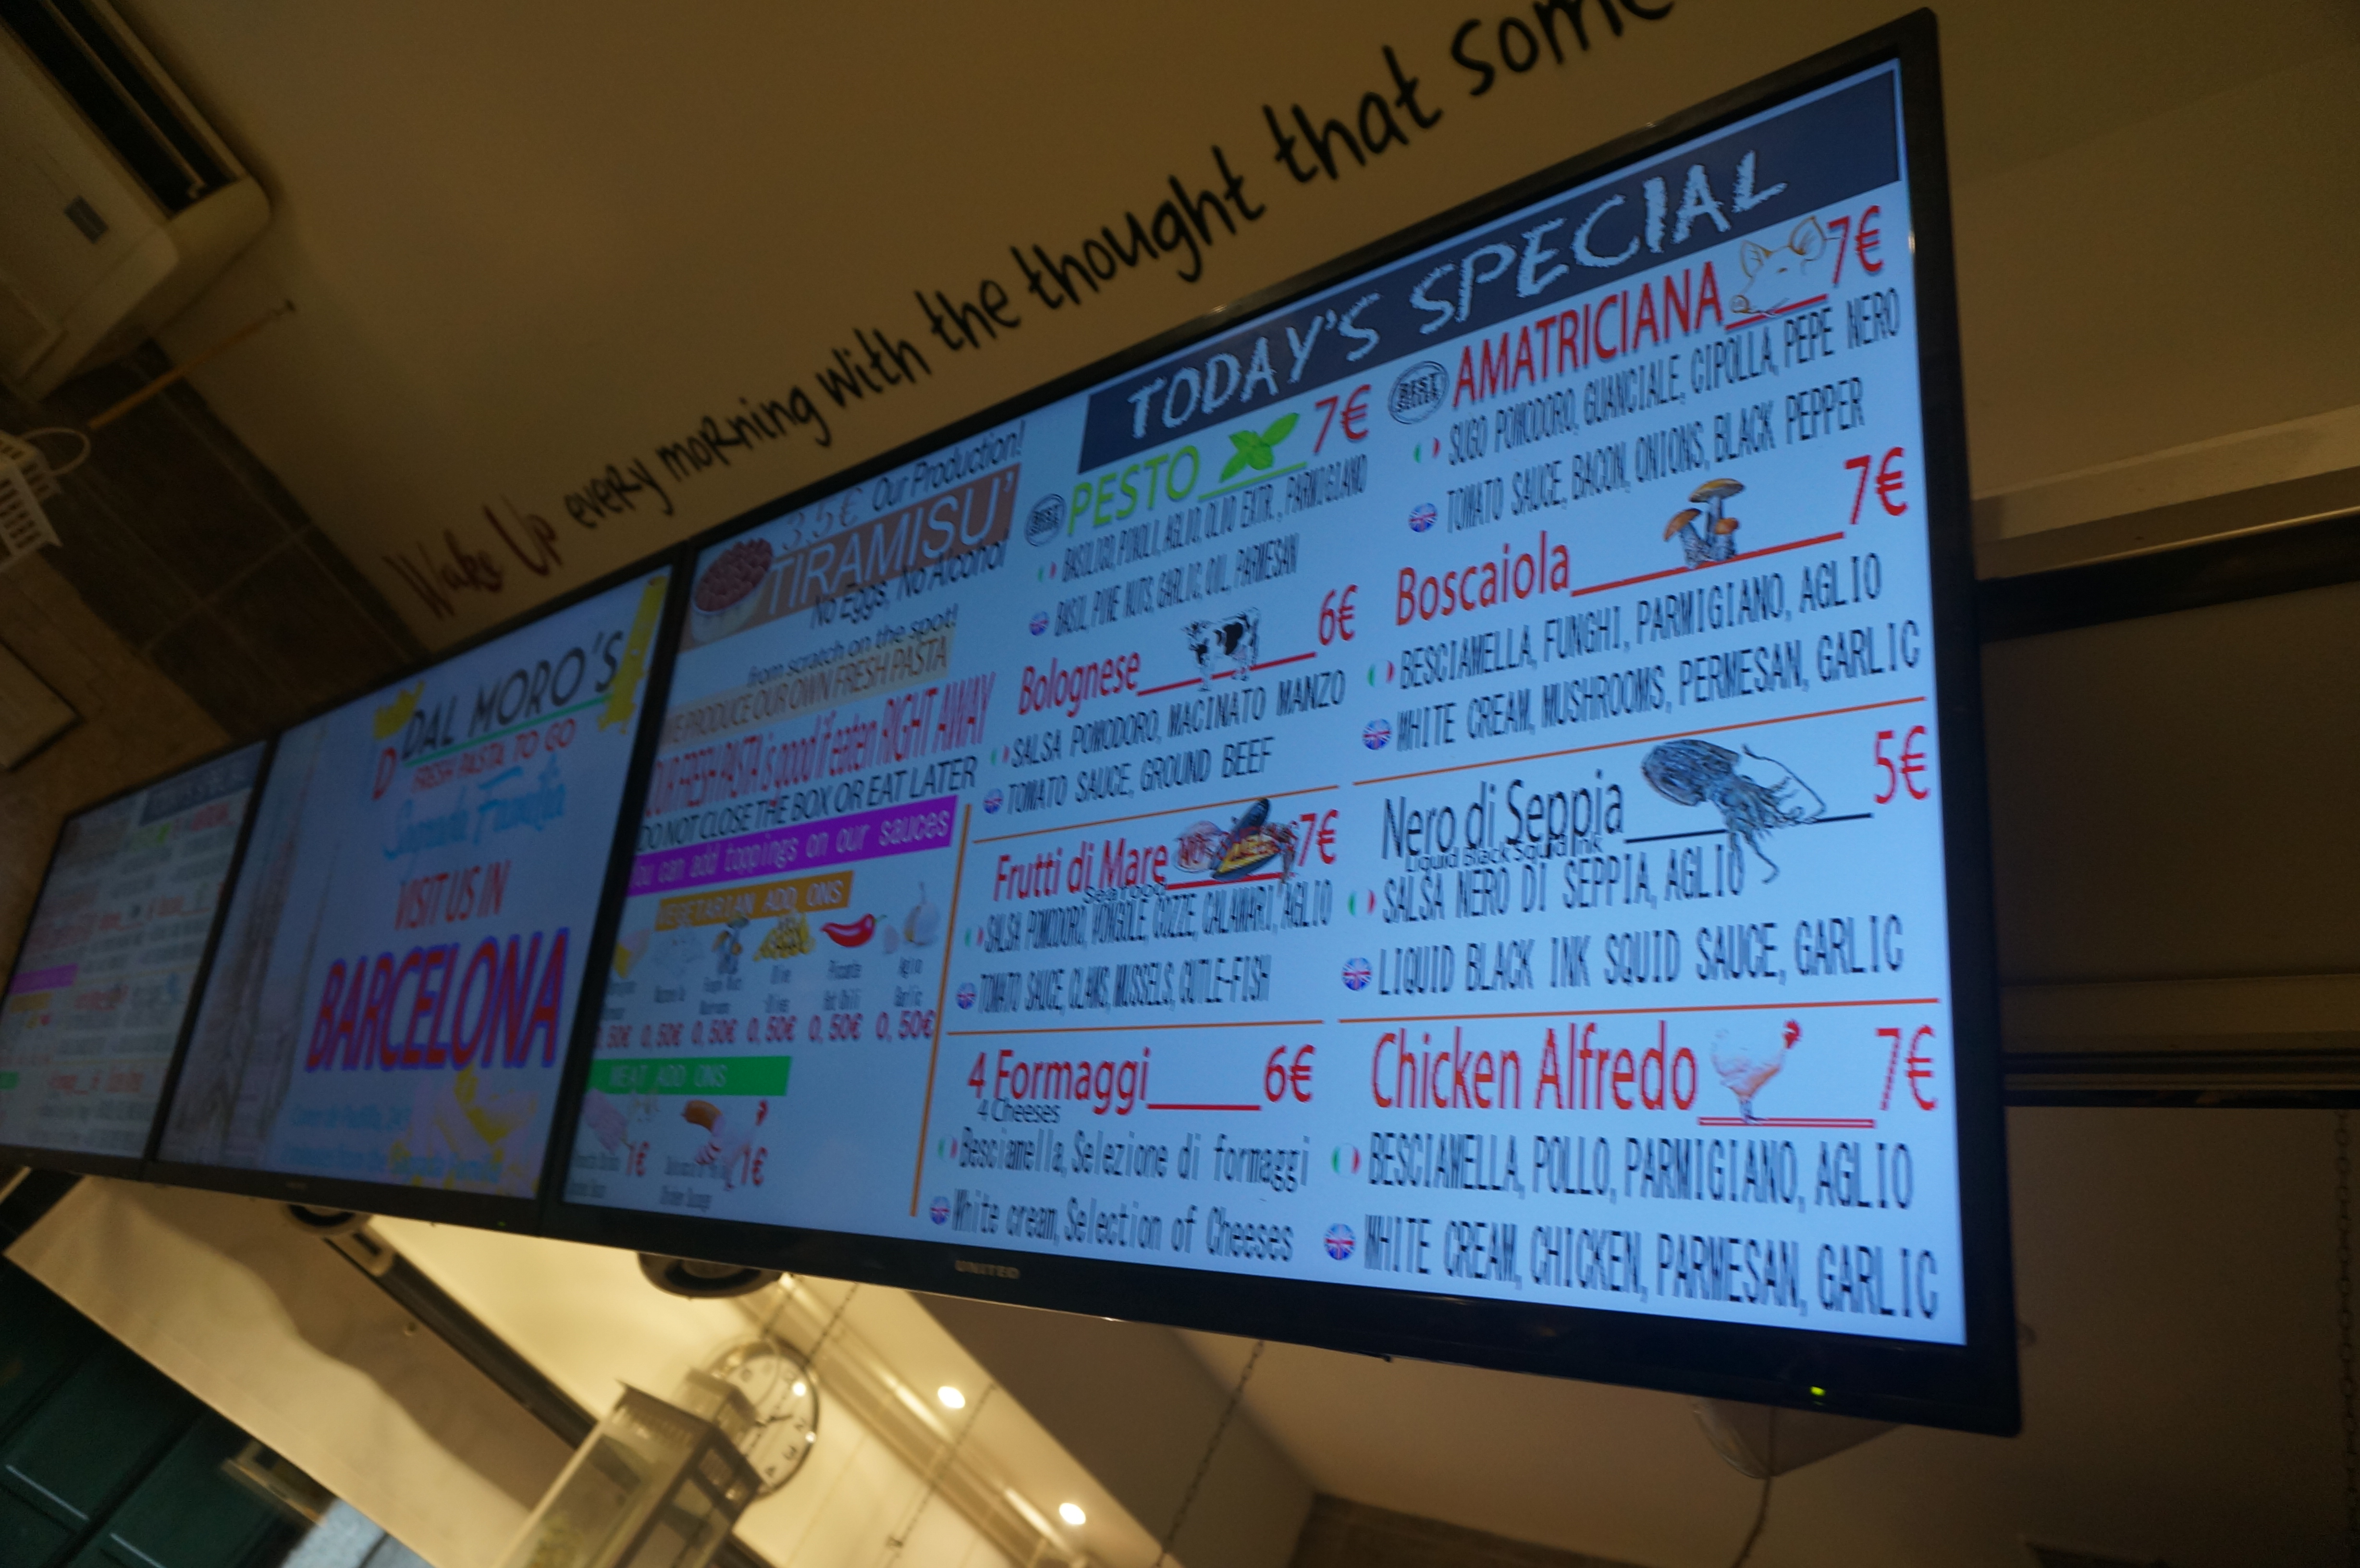 Wake Up every morning with the thought that some
DAL MORO'S
FRESH PASTA TO GO
VISIT US IN
BARCELONA
3.5€ Our Production!
TIRAMISU'
No Eggs, No Alcohol
from scratch on the spot!
WE PRODUCE OUR OWN FRESH PASTA
OUR FRESH PASTA is good if eaten RIGHT AWAY
DO NOT CLOSE THE BOX OR EAT LATER
You can add toppings on our sauces
VEGETARIAN ADD ONS
Olive Piccante Aglio
Olives Hot Chili Garlic
,50€ 0,50€ 0,50€ 0,50€ 0,50€ 0,50€
MEAT ADD ONS
1€ 1€
TODAY'S SPECIAL
BEST PESTO 7€
BASILICO, PINOLI, AGLIO, OLIO EXTR., PARMIGIANO
BASIL, PINE NUTS, GARLIC, OIL, PARMESAN
Bolognese 6€
SALSA POMODORO, MACINATO MANZO
TOMATO SAUCE, GROUND BEEF
Frutti di Mare 7€
Seafood
SALSA POMODORO, VONGOLE, COZZE, CALAMARI, AGLIO
TOMATO SAUCE, CLAMS, MUSSELS, CUTLE-FISH
4 Formaggi 6€
4 Cheeses
Besciamella, Selezione di formaggi
White cream, Selection of Cheeses
BEST AMATRICIANA 7€
SUGO POMODORO, GUANCIALE, CIPOLLA, PEPE NERO
TOMATO SAUCE, BACON, ONIONS, BLACK PEPPER
Boscaiola 7€
BESCIAMELLA, FUNGHI, PARMIGIANO, AGLIO
WHITE CREAM, MUSHROOMS, PERMESAN, GARLIC
Nero di Seppia 5€
Liquid Black Squid Ink
SALSA NERO DI SEPPIA, AGLIO
LIQUID BLACK INK SQUID SAUCE, GARLIC
Chicken Alfredo 7€
BESCIAMELLA, POLLO, PARMIGIANO, AGLIO
WHITE CREAM, CHICKEN, PARMESAN, GARLIC
UNITED